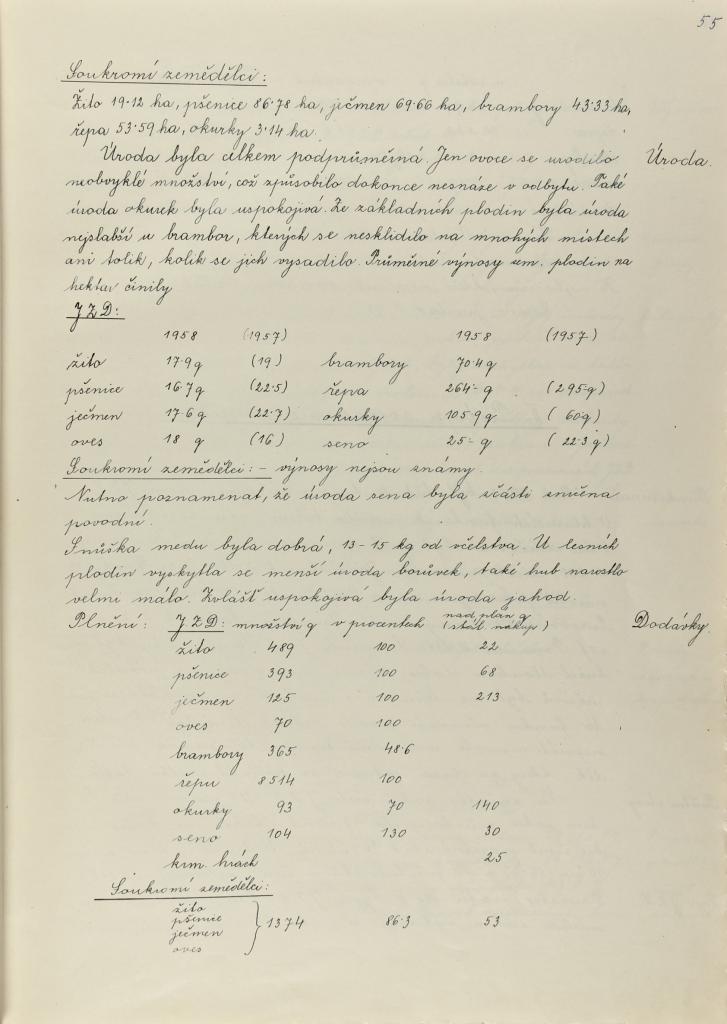 55
Soukromí zemědělci:
Žito 19·12 ha, pšenice 86·78 ha, ječmen 69·66 ha, brambory 43·33 ha,
řepa 53·59 ha, okurky 3·14 ha.
Úroda byla celkem podprůměrná. Jen ovoce se urodilo Úroda.
neobvyklé množství, což způsobilo dokonce nesnáze v odbytu. Také
úroda okurek byla uspokojivá. Ze základních plodin byla úroda
nejslabší u brambor, kterých se nesklidilo na mnohých místech
ani tolik, kolik se jich vysadilo. Průměrné výnosy zem. plodin na
hektar činily
JZD:
1958 (1957) 1958 (1957)
žito 17·9 q (19) brambory 70·4 q
pšenice 16·7 q (22·5) řepa 264·- q (295·q)
ječmen 17·6 q (22·7) okurky 105·9 q (60 q)
oves 18 q (16) seno 25·- q (22·3 q)
Soukromí zemědělci: - výnosy nejsou známy.
Nutno poznamenat, že úroda sena byla zčásti zničena
povodní.
Snůška medu byla dobrá, 13-15 kg od včelstva. U lesních
plodin vyskytla se menší úroda borůvek, také hub narostlo
velmi málo. Zvlášť uspokojivá byla úroda jahod.
Plnění: JZD: množství q v procentech nad plán q (stát. nákup) Dodávky.
žito 489 100 22
pšenice 393 100 68
ječmen 125 100 213
oves 70 100
brambory 365 48·6
řepu 8514 100
okurky 93 70 140
seno 104 130 30
krm. hrách 25
Soukromí zemědělci:
žito
pšenice
ječmen } 1374 86·3 53
oves